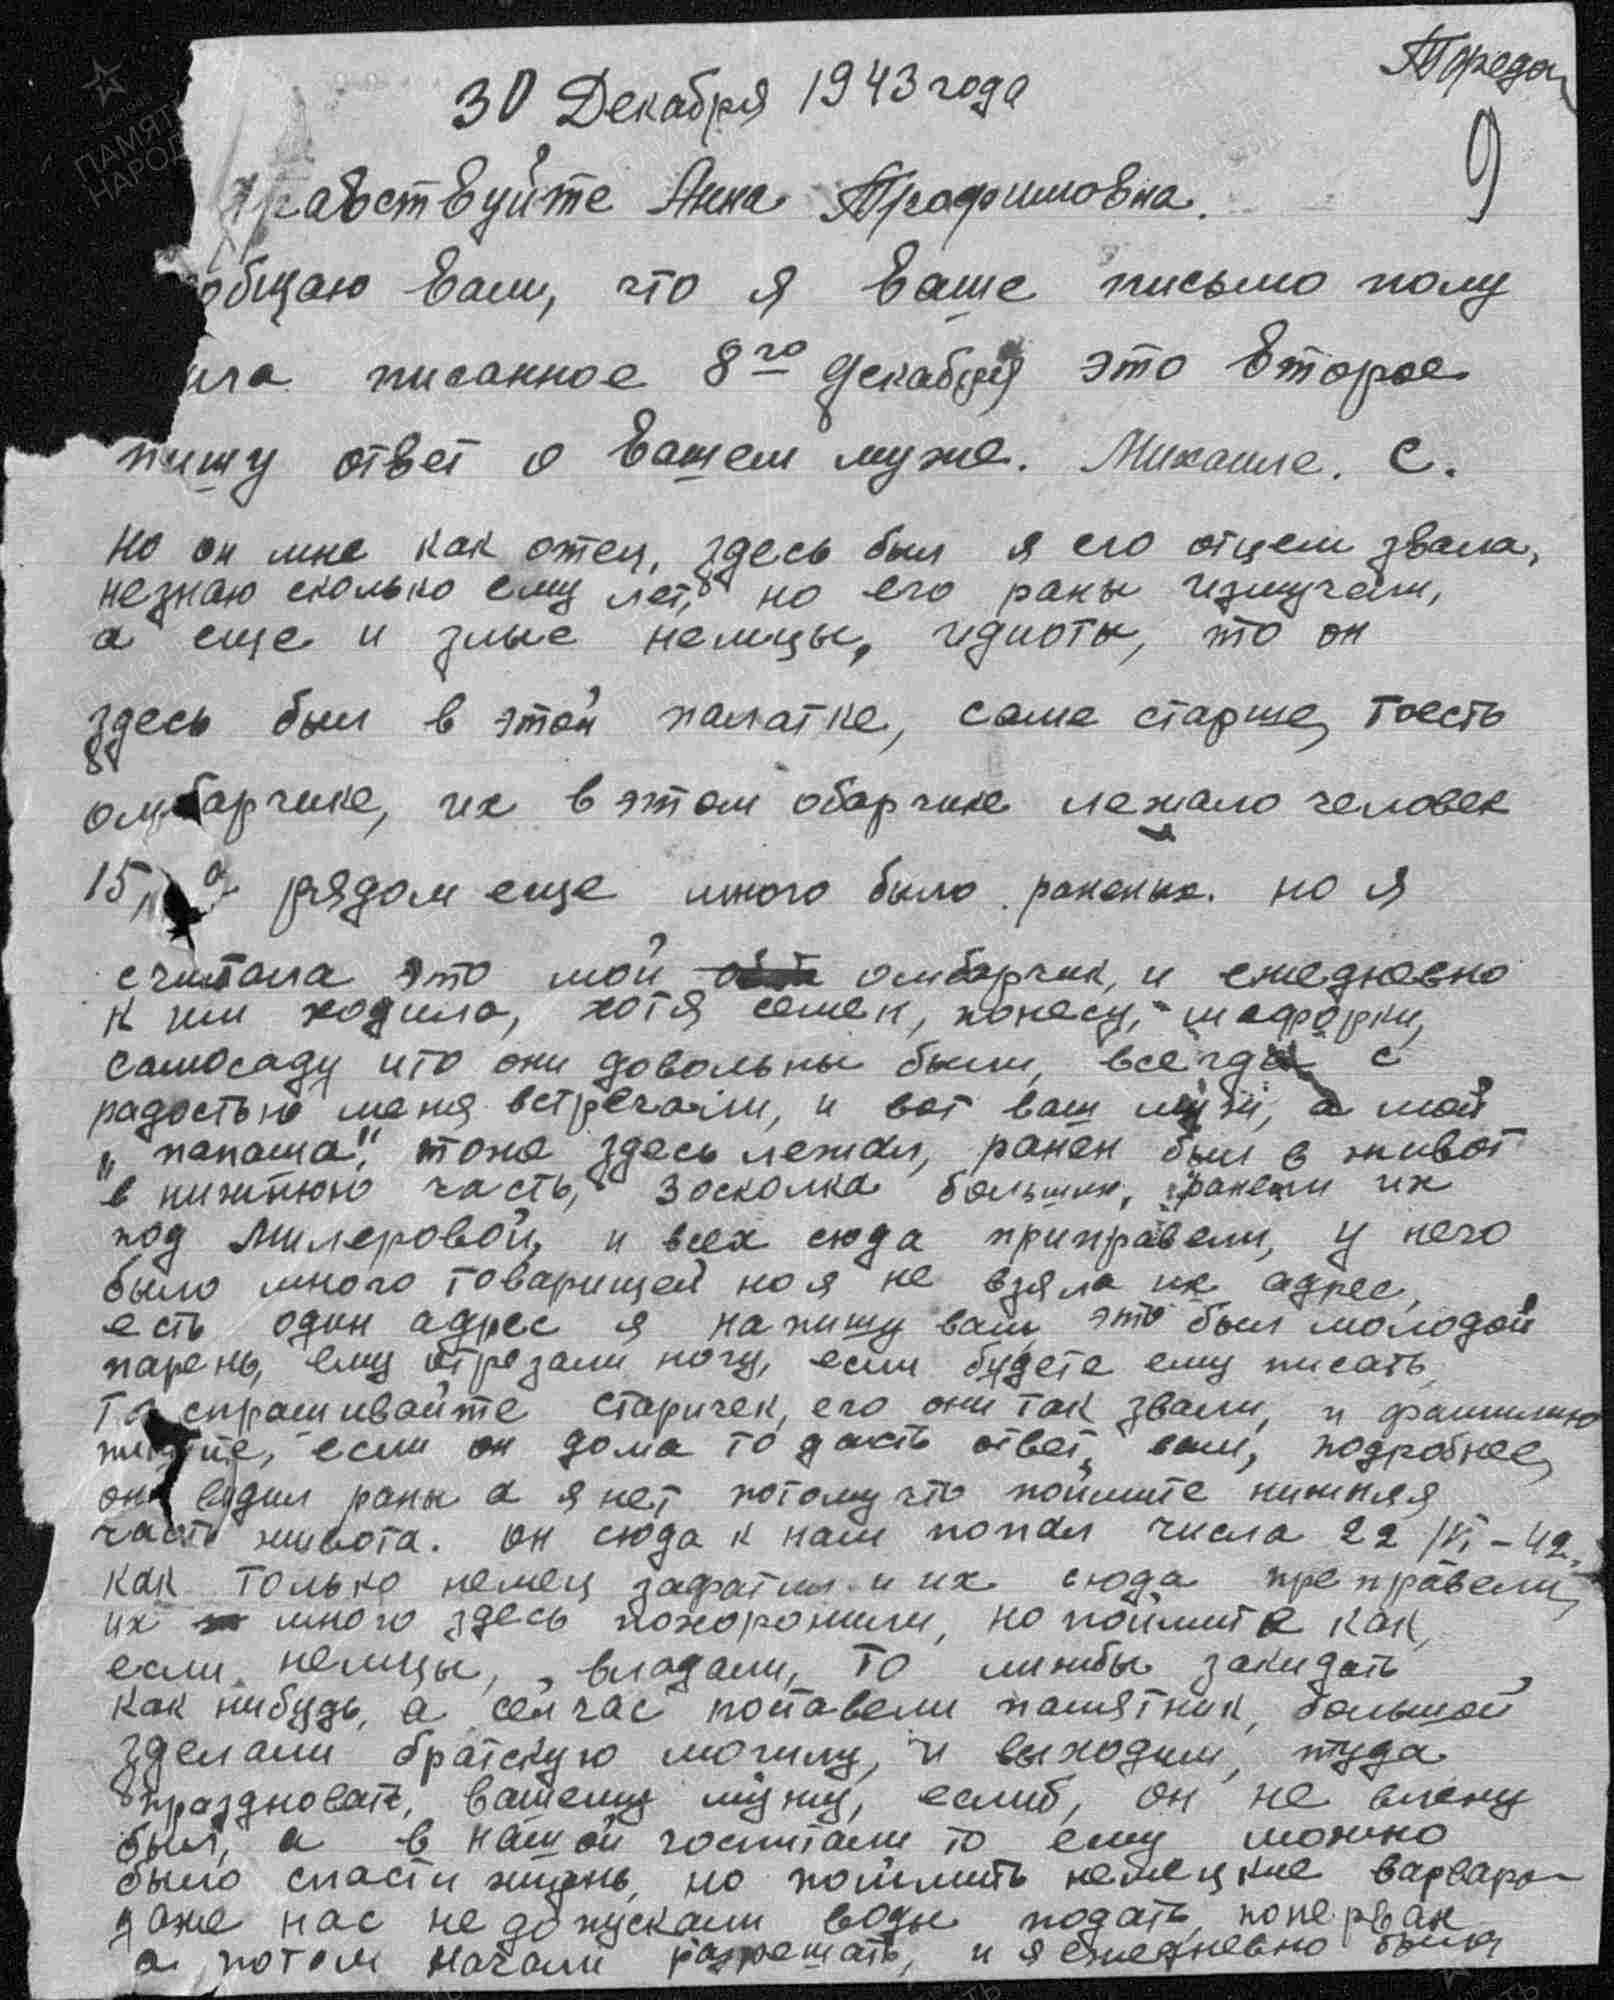 30 Декабря 1943 года
9
равствуйте Анна Трофимовна.
общаю Вам, что я Ваше письмо полу
ила писанное 8го декабря это второе
пишу ответ о Вашем муже. Михаиле. С.
но он мне как отец, здесь был я его отцем звала,
незнаю сколько ему лет, но его раны измучали,
а еще и злые немцы, идиоты, то он
здесь был в этой палатке, саме старше, тоесть
омбарчике, их в этом обарчике лежало человек
15, а рядом еще много было раненых. но я
считала это мой омбарчик, и ежедневно
к ним ходила, хотя семен, понесу, махорки,
самосаду что они довольны были, всегда с
радостью меня встречали, и вот ваш муж, а мой
"папаша", тоже здесь лежал, ранен был в живот
в нижнюю часть, 3 осколка больших, ранети их
под Милеровой, и всех сюда приправели, у него
было много товарищей но я не взяла их адрес,
есть один адрес я напишу вам, это был молодой
парень, ему отрезали ногу, если будете ему писать
то спрашивайте старичек, его они так звали, и фамилию
пишите, если он дома то дасть ответ, вам, подробнее,
он видил раны а я нет потому что поймите нижняя
часть живота. он сюда к нам попал числа 22/VI-42.
как только немец зафатил и их сюда преправели,
их много здесь похоронили, но поймите как,
если немцы, владали, то лижбы закидать
как нибудь, а сейчас поставели памятник, большой
зделали братскую могилу, и выходим, туда
праздновать, вашему мужу, еслиб, он не влену
был, а в нашой госпитали то ему можно
было спасти жизнь, но поймить немецкие варвары
даже нас не допускали воды подать, поперваж
а потом начали разрешать, и я ежедневно была